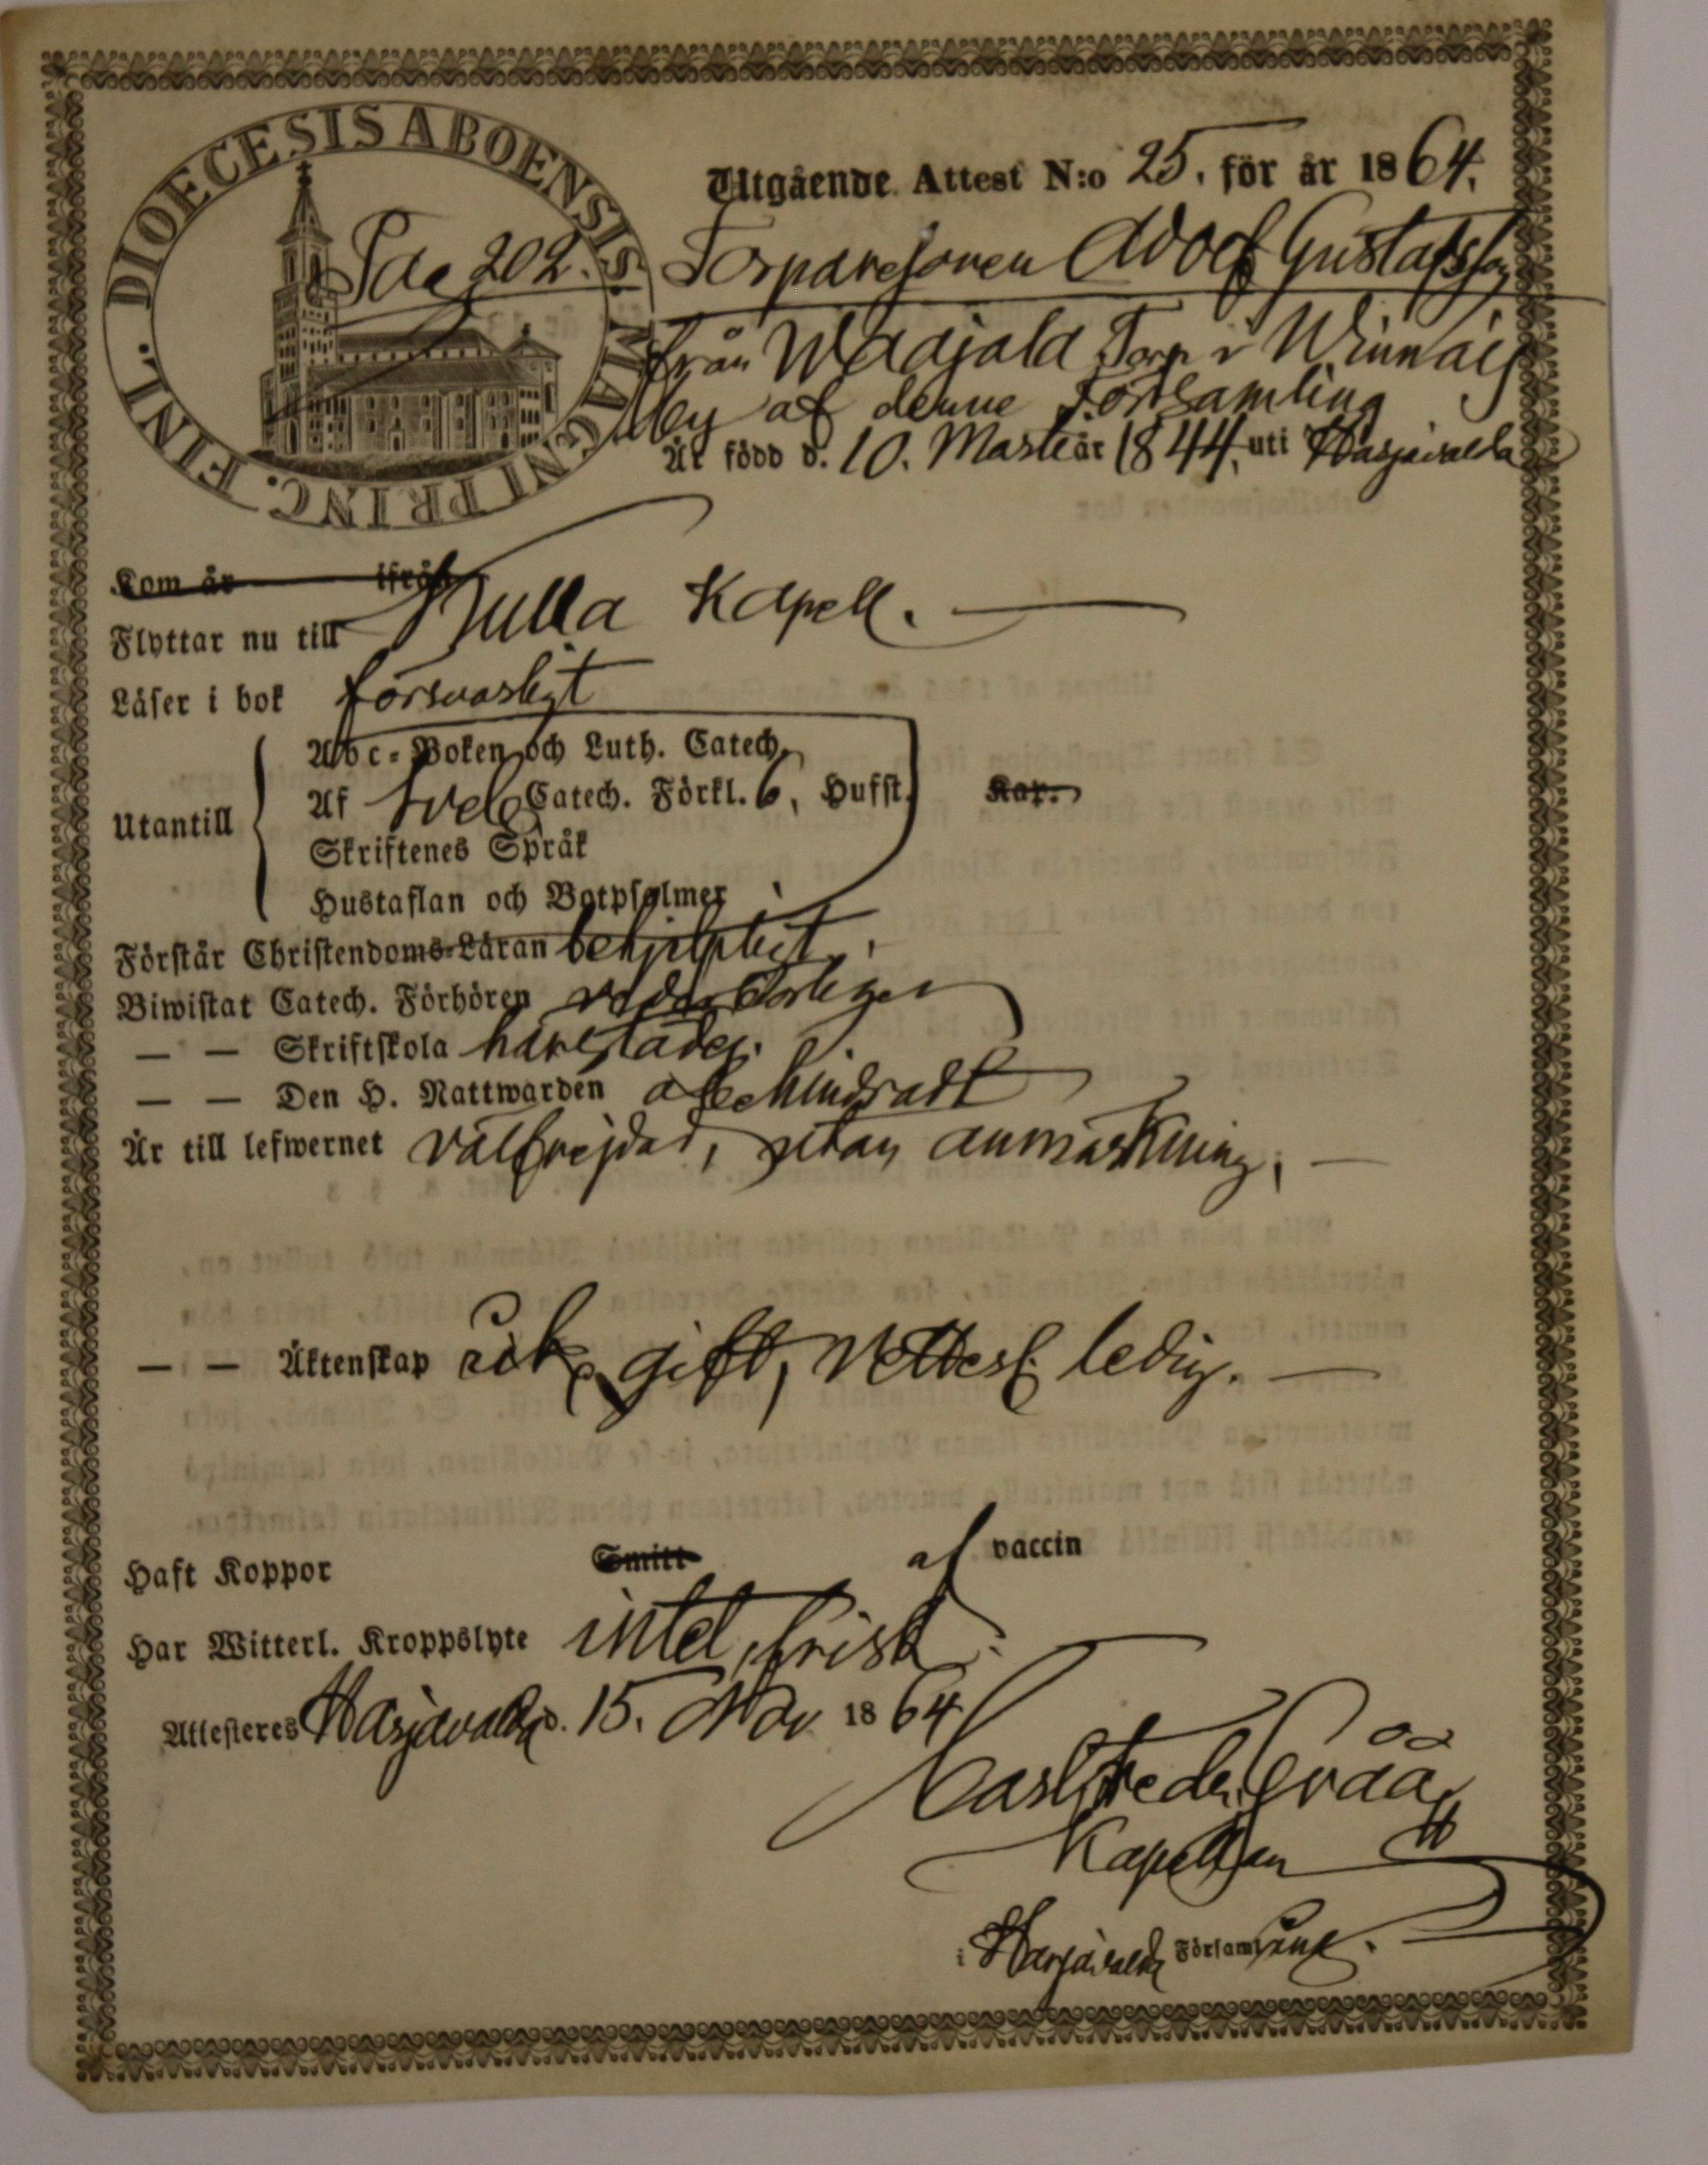 DIOECESIS ABOENSIS. MAGNI PRINC. FINL.
Pag 202.
Utgående Attest N:o 25. för år 1864.
Torparesonen Adolf Gustafsson
från Waajala Torp i Winnais
by af denne Församling
Är född d. 10. Mars år 1844. uti Harjavalda
Kom år ifrån
Flyttar nu till Kulla Kapell.
Läser i bok försvarligt
Abc-Boken och Luth. Catech.
Utantill
Af Sveb Catech. Förkl. 6, Hufst. Kap.
Skriftenes Språk
Hustaflan och Botpsalmer
Förstår Christendoms-Läran behjelpligt.
Biwistat Catech. Förhören vederbörligen
— — Skriftskola härstädes.
— — Den H. Nattwarden obehindradt
Är till lefwernet välfrejdad, utan anmärkning. —
— — Äktenskap icke gift, ledig. —
Haft Koppor Smitt af vaccin
Har Witterl. Kroppslyte intet, frisk
Attesteres Harjavalda d. 15. Nov 1864
Carl Fredr. Grää
Kapellan
i Harjavalda Församling.